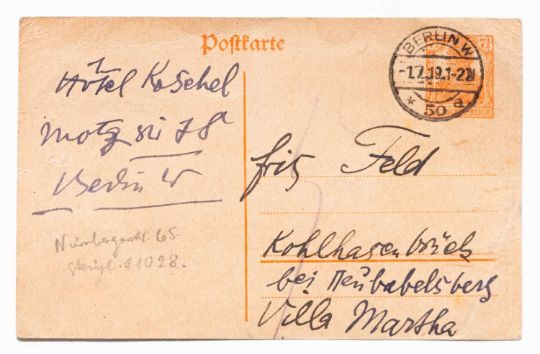 Postkarte
BERLIN W
1.7.19.1-2N
* 50 a
Hôtel Koschel
Motzstr 78
Berlin W
Nürnbergerstr. 65
1028.
Fritz Feld
Kohlhasenbrück
bei Neubabelsberg
Villa Martha